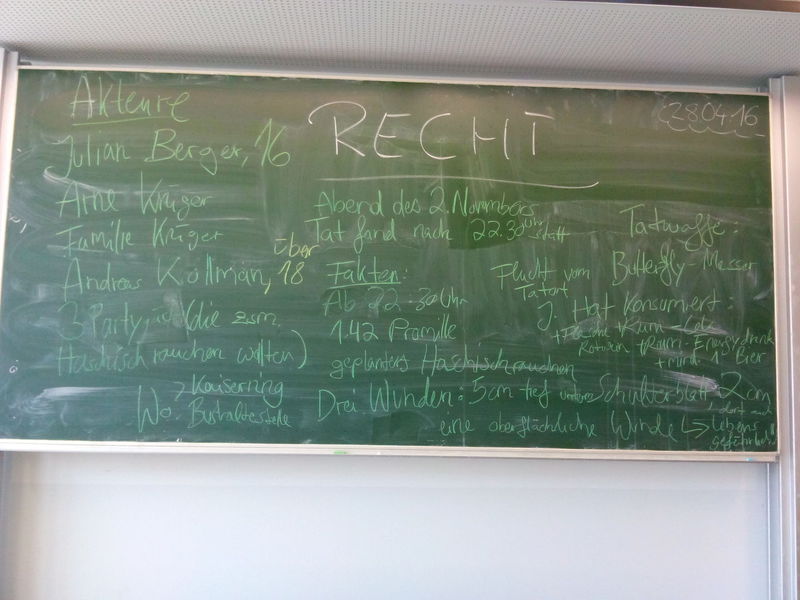 Akteure
Julian Berger, 16
Arne Krüger
Familie Krüger
Andreas Kollman, über 18
3 Party (die zsm.
Haschisch rauchen wollten)
Wo: Kaiserring
Bushaltestelle
RECHT
28.04.16
Abend des 2. Novembers
Tat fand nach 22.30 Uhr statt
Fakten:
Ab 22:30 Uhr
1.42 Promille
geplantes Haschischrauchen
Drei Wunden: 5cm tief unterm Schulterblatt, 2cm
eine oberflächliche Wunde → lebens
gefährlich
Flucht vom
Tatort
Tatwaffe:
Butterfly-Messer
J. Hat Konsumiert:
1 Flasche Rum-Cola
Rotwein + Rum-Energydrink
+ mind. 1 Bier